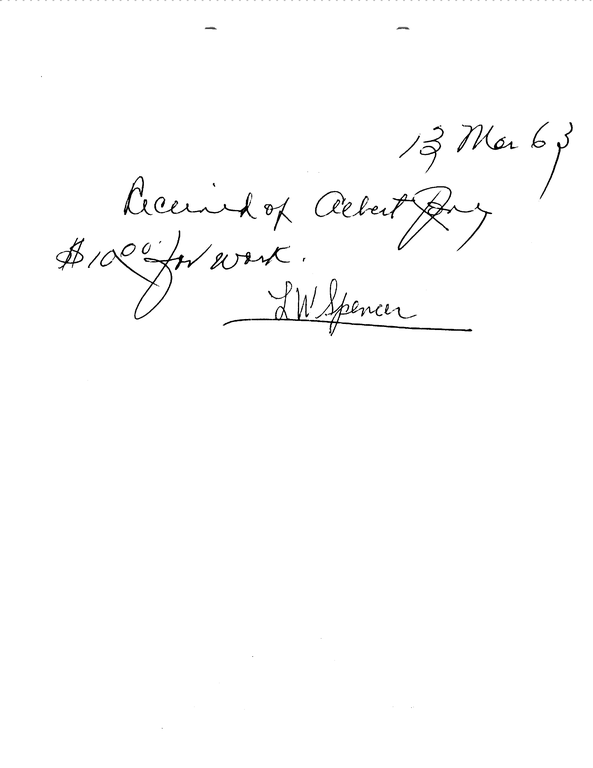 13 Mar 63
Received of Albert
$10.00 for work.
LW Spencer